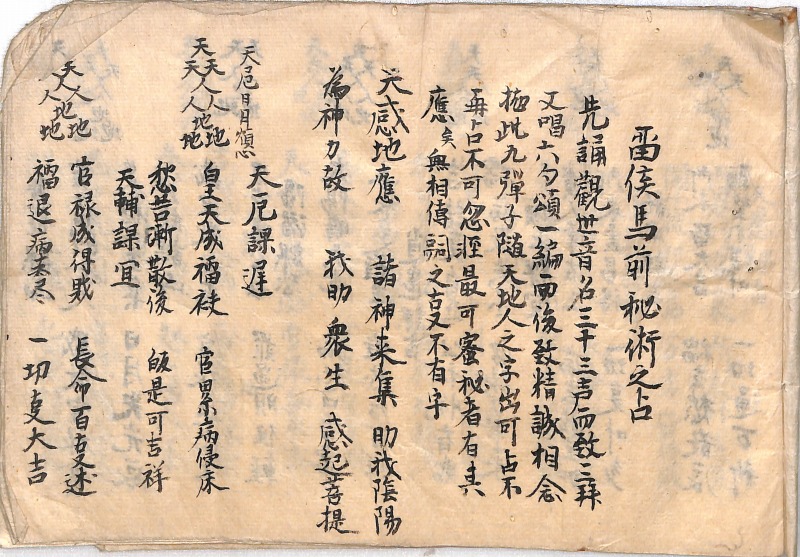 雷侯馬前秘術之占
先誦觀世音名三十三声而致三拜
又唱六句頌一編而後致精誠相念
擲此九彈子随天地人之字出可占不
再占不可忽輕最可蜜秘者有其
應矣無相傳詞之叓不有字
天感地應 諸神来集 助我陰陽
為神力故 我助衆生 感起菩提
天厄課遲
天厄日月順心
天天天人人人地地地
白王天成福祑 官累病侵床
愁苦漸散後 皈是可吉祥
天輔課宜
天人人人地地地
官禄成得戝 長命百叓述
福退病未尽 一切叓大吉